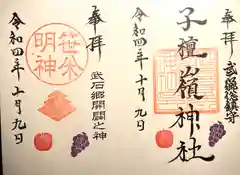 奉拝
武石 鎮守
子檀嶺神社
令和四年十月九日
奉拝
武石郷開闢之神
笹
明神
令和四年十月九日